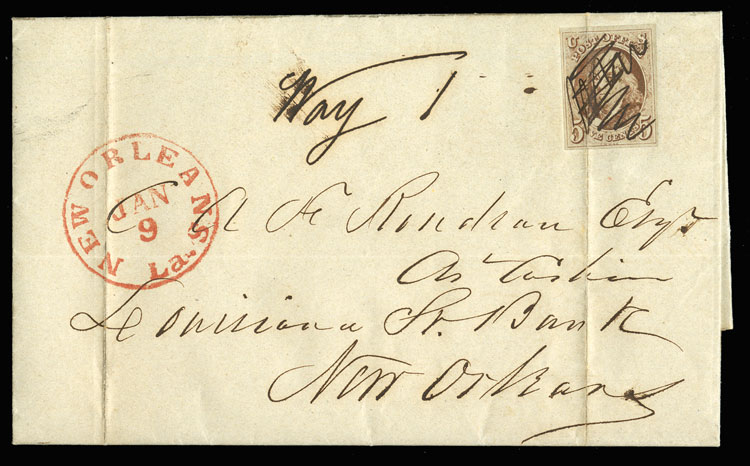 Way 1
U S
POST OFFICE
5 FIVE CENTS 5
NEW ORLEANS
La.
JAN
9
A F Rondeau Esqr
As Cashier
Louisiana St. Bank
New Orleans